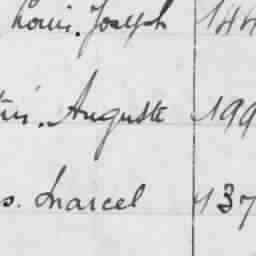 Louis. Joseph 144
. Auguste 199
s. Marcel 137